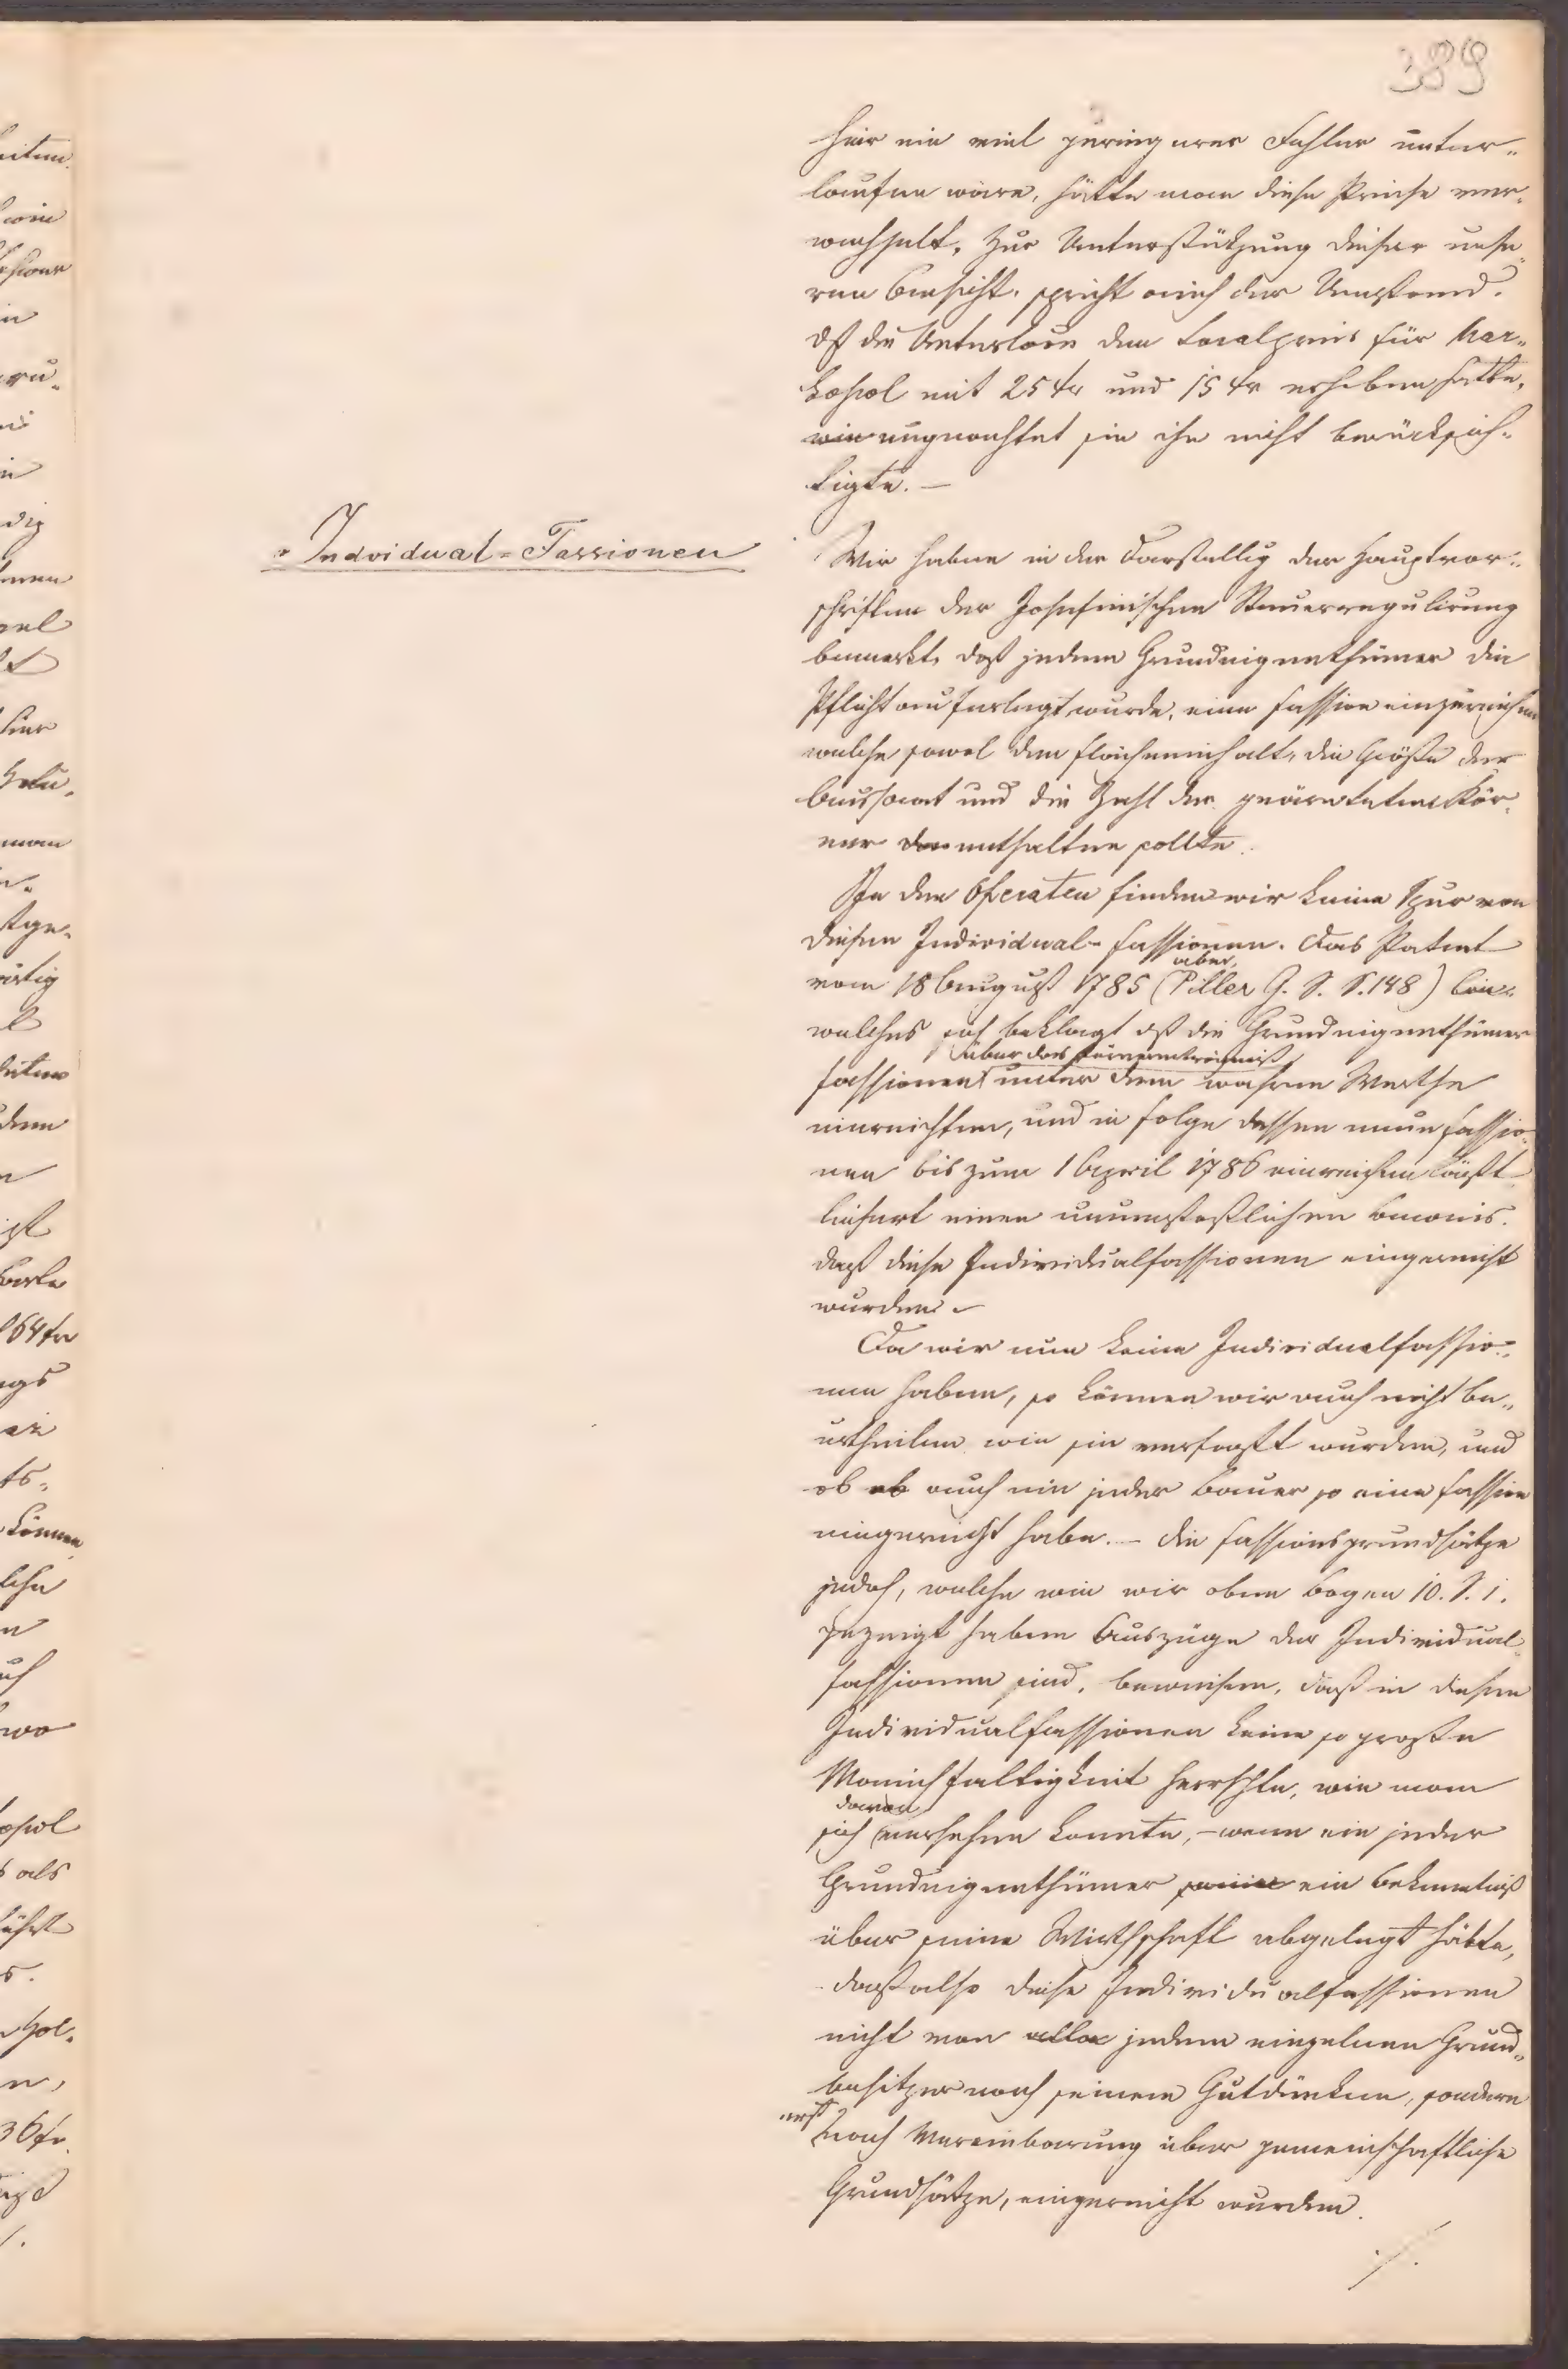 389
hier ein viel geringerer Fehler unter„
laufen wäre, hätte man diese Preise ver„
wechselt. Zur Unterstützung dieser unse„
ren Ansicht, spricht auch der Umstand.
dß die Unterlois den Localpreis für Mar„
kopol mit 25 xr und 15 xr erhoben hatte,
wie ungeachtet sie ihn nicht berücksich„
tigte. —
Individual-Fassionen
Wir haben in der Darstellg der Hauptvor„
schriften der Josefinischen Steuerregulirung
bemerkt, daß jedem Grundeigenthümer die
Pflicht auferlegt wurde, eine Fassion einzureichen
welche sowol den Flächeninhalt, die Größe der
Aussaat und die Zahl der geärnteten Kör„
ner den enthalten sollte.
In den Operaten finden wir keine Spur von
diesen Individual-Fassionen. Das Patent
aber
vom 18 August 1785 (Piller G. S. S. 148)
welches sich beklagt dß die Grundeigenthümer
über das Körnererträgniß
Fassionen unter dem wahren Werthe
einreichten, und in Folge dessen neue Fassio„
nen bis zum 1 April 1786 einreichen läßt
liefert einen unumstößlichen Beweis.
daß diese Individualfassionen eingereicht
wurden. –
Da wir nun keine Individualfassio„
nen haben, so können wir auch nicht be„
urtheilen wie sie verfaßt wurden, und
ob ob auch ein jeder Bauer so eine Fassion
eingereicht habe. – Die Fassionsgrundsätze
jedoch, welche wie wir oben Bogen 10. S. 1.
gezeigt haben Auszüge der Individual„
fassionen sind, beweisen, daß in diesen
Individualfassionen keine so große
Mannichfaltigkeit herrschte, wie man
davon
sich versehen konnte, – wenn ein jeder
Grundeigenthümer seine ein Bekenntniß
über seine Wirthschaft abgelegt hätte,
daß also diese Individualfassionen
nicht von alle jedem einzelnen Grund„
besitzer nach seinem Gutdünken, sondern
erst
nach Vereinbarung über gemeinschaftliche
Grundsätze, eingereicht wurden.
./.